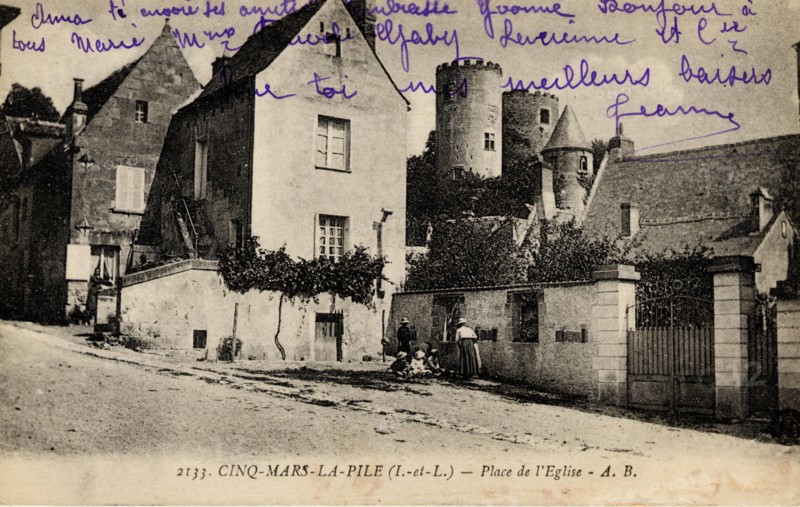 Anna t'a envoié ses amitiés embrasse Yvonne Bonjour à
tous Marie Mme Gaby Lucienne et Cie
toi mes meilleurs baisers
Jeanne
2133. CINQ-MARS-LA-PILE (I.-et-L.) — Place de l'Eglise - A. B.